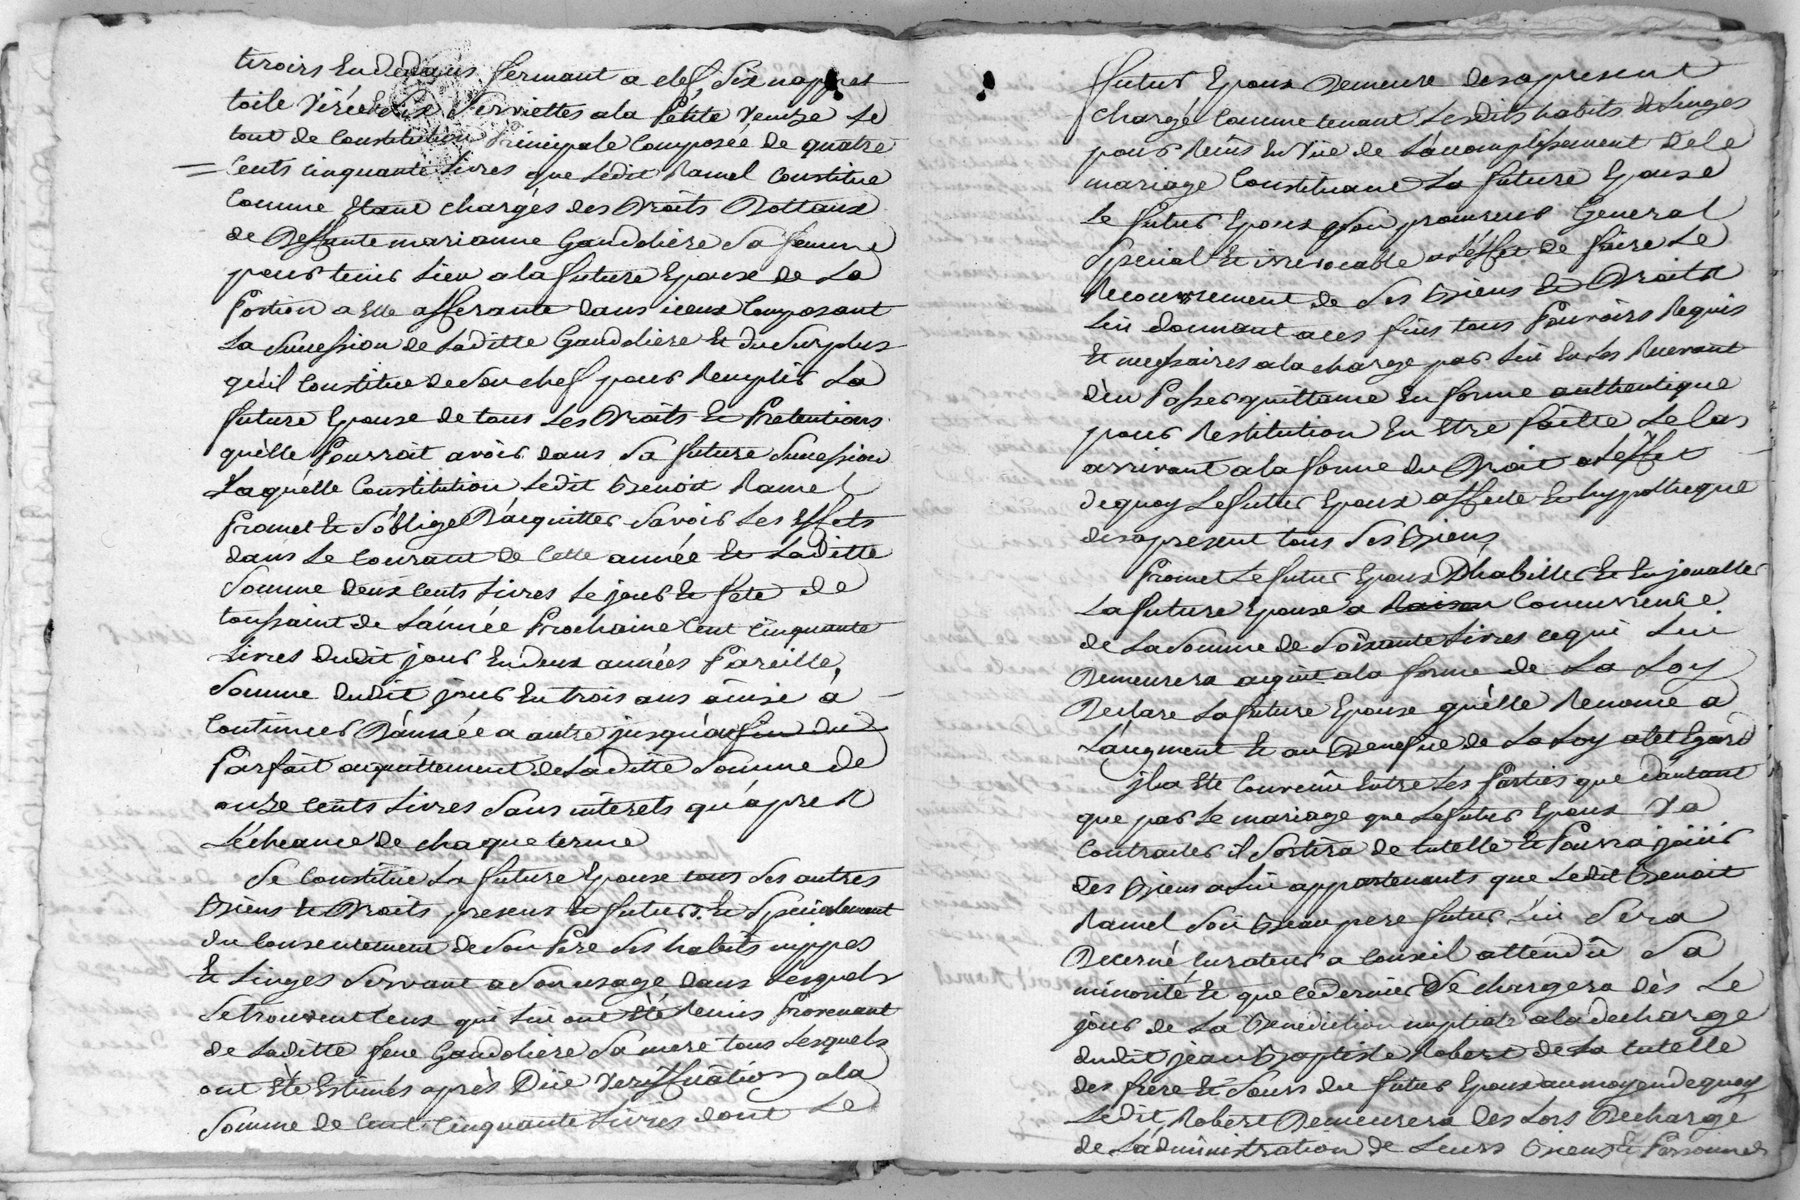 tiroirs Endedans fermant a clef, Six nappes
toile Dix Serviettes ala Petite Venize Le
tout de Constitution Principale Composée de quatre
Cents cinquante Livres que Ledit Ramel Constitue
Comme Etant chargés des Droits Dottaux
de Deffunte marianne Gaudoliere Sa femme
pour tenir Lieu a la future Epouse de La
Portion a Elle afferante dans iceux Composant
La Succession de Laditte Gaudoliere Et du Surplus
qu'il Constitue de Son chef pour Remplir La
future Epouse de tous Les Droits Et Pretentions
qu'elle Pourrait avoir dans Sa future Succession
Laquelle Constitution Ledit Benoit Ramel
Promet Et S'oblige D'acquitter Savoir Les Effets
dans Le Courant de Cette année Et Laditte
Somme deux Cents Livres Le jour Et fete de
toussaint de L'année Prochaine Cent Cinquante
Livres dudit jour En deux années Pareille
Somme dudit jour En trois ans ainsi à
Continuer D'année a autre jusqu'au fin dud
Parfait acquittement de Laditte Somme de
onze Cents Livres Sans intérets qu'apres
L'écheance de chaque terme
Se Constitue La future Epouse tous Ses autres
Biens Et Droits presens Et futurs Et Specialement
du Consentement de Son Pere Ses habits nippes
Et Linges Servant a Son usage dans Lesquels
Se trouvent Ceux qui Lui ont été Remis Provenant
de Laditte feue Gaudoliere Sa mere tous Lesquels
ont Eté Estimés après Düe Veriffication ala
Somme de Cent Cinquante Livres dont Le
futur Epoux Demeure desapresent
chargé Comme tenant Lesdits habits de Linges
pour Reçus En Vüe de L'accomplissement dele
mariage Constituant La future Epouse
Le futur Epoux Son procureur General
Special Et irrevocable a L'effet de faire Le
Recouvrement de Ses Biens Et Droits
Lui donnant a ces fins tous Pouvoirs Requis
Et necessaires a la charge par Lui En Les Recevant
d'en Passer quittance En forme authentique
pour Restitution En Etre faitte Le Cas
arrivant a la forme du Droit a L'effet
dequoy Le futur Epoux affecte Et hypotheque
desapresent tous Ses Biens
Promet Le futur Epoux D'habiller Et En joualler
La future Epouse a Raison Concurrence
de La Somme de Soixante Livres ce qui Lui
Demeurera acquit a la forme de La Loy
Declare La future Epouse qu'elle Renonce a
L'augment Et au Benefice de La Loy a Cet Egard
jl a Eté Convenû Entre Les Parties que d'autant
que par Le mariage que Le futur Epoux Va
Contracter il Sortira de tutelle Et Pourra joüir
des Biens a Lui appartenants que Ledit Benoit
Ramel Son Beau pere futur Lui Sera
Decerné Curateur a Conseil attendû Sa
minorité Et que Ce dernier Se chargera dès Le
jour de La Benediction nuptiale a la decharge
dudit jean Baptiste Robert de La tutelle
des frere Et Sœurs du futur Epoux au moyen dequoy
Ledit Robert Demeurera Des Lors Dechargé
de L'administration de Leurs Biens Et Personnes